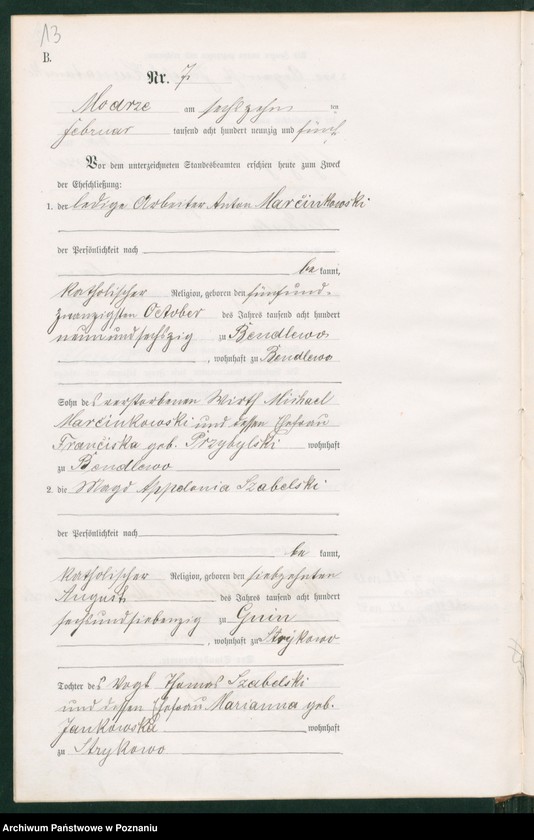 13
B.
Nr. 7.
Modrze am sechszehnten
Februar tausend acht hundert neunzig und fünf.
Vor dem unterzeichneten Standesbeamten erschien heute zum Zweck
der Eheschließung:
1. der ledige Arbeiter Anton Marcinkowski
der Persönlichkeit nach
be kannt,
katholischer Religion, geboren den fünfund-
zwanzigsten October des Jahres tausend acht hundert
neunundsechszig zu Bendlewo
, wohnhaft zu Bendlewo
Sohn des verstorbenen Wirth Michael
Marcinkowski und dessen Ehefrau
Franciska geb. Przybylski wohnhaft
zu Bendlewo
2. die Magd Appolonia Szabelski
der Persönlichkeit nach
be kannt,
katholischer Religion, geboren den siebzehnten
August des Jahres tausend acht hundert
sechsundsiebenzig zu
, wohnhaft zu Strykowo
Tochter des Vogt Thomas Szabelski
und dessen Ehefrau Marianna geb.
Jankowska wohnhaft
zu Strykowo
Archiwum Państwowe w Poznaniu